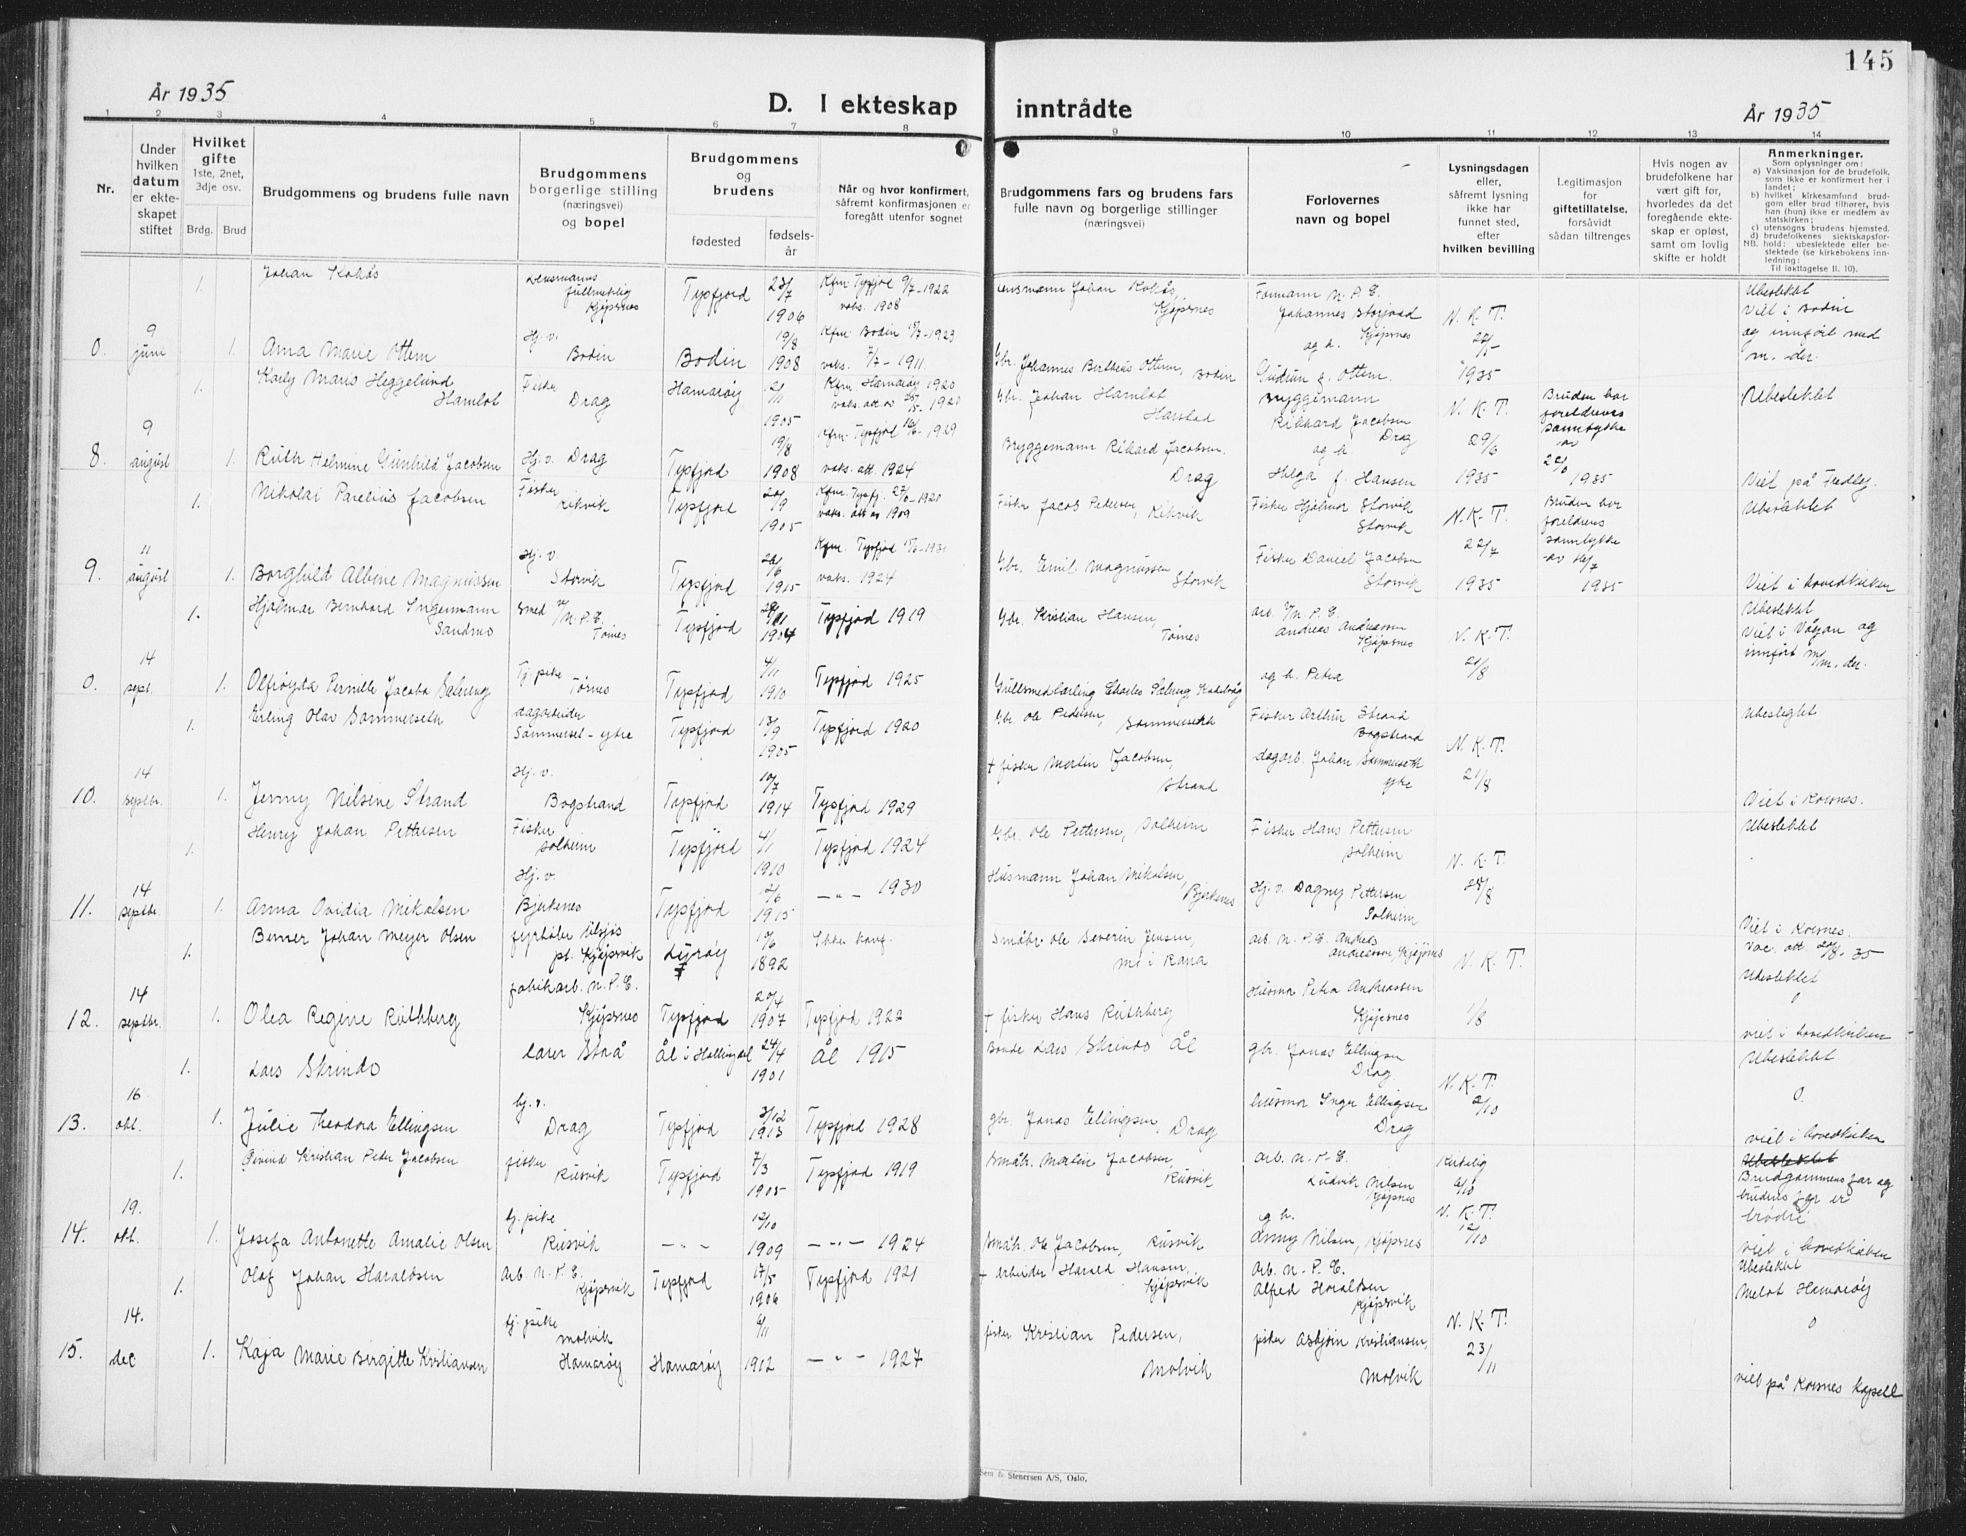 145
År 1935
D. I ekteskap inntrådte
År 1935
1 2 3 4 5 6 7 8 9 10 11 12 13 14
Nr.
Under hvilken datum er ekteskapet stiftet
Hvilket gifte
1ste, 2net, 3dje osv.
Brdg. Brud
Brudgommens og brudens fulle navn
Brudgommens borgerlige stilling (næringsvei) og bopel
Brudgommens og brudens
fødested
fødselsår
Når og hvor konfirmert, såfremt konfirmasjonen er foregått utenfor sognet
Brudgommens fars og brudens fars fulle navn og borgerlige stillinger (næringsvei)
Forlovernes navn og bopel
Lysningsdagen eller, såfremt lysning ikke har funnet sted, efter hvilken bevilling
Legitimasjon for giftetillatelse, forsåvidt sådan tiltrenges
Hvis nogen av brudefolkene har vært gift før, hvorledes da det foregående ekteskap er opløst, samt om lovlig skifte er holdt
Anmerkninger.
Som oplysninger om:
a) Vaksinasjon for de brudefolk, som ikke er konfirmert her i landet;
b) hvilket kirkesamfund brudgom eller brud tilhører, hvis han (hun) ikke er medlem av statskirken;
c) utensogns brudens hjemsted.
d) brudefolkenes slektskapsforhold: ubeslektede eller beslektede (se kirkebokens innledning:
Til iakttagelse II. 10).
1. Johan Kokås Lensmanns fullmektig Kjøpsnes Tysfjord 23/7 1906 Kfm Tysfjord 9/7-1922 vaks. 1908 Lensmann Johan Kokås, Kjøpsnes Formann N.P.C. Johannes Storjord Kjøpsnes N.K.T. Ubeslektet Viet i Bodin
0. 9 juni 1. Anna Marie Ottem Hj.v. Bodin Bodin 19/8 1908 Kfm Bodin -1923 vaks. 7/7-1911 Gbr. Johannes Bertheus Ottem, Bodin og h. Gudrun f. Ottem. 1935 og innført med m. der.
1. Karly Maris Heggelund Hamlot Fisker Drag Hamarøy 2/11 1905 Kfm Hamarøy 1920 vaks. att. av -1920 Gbr. Johan Hamlot Harstad Bryggemann Rikhard Jacobsen Drag N.K.T. Bruden har foreldrenes samtykke av Ubeslektet
8. 9 august 1. Ruth Helmine Gunhild Jacobsen Hj.v. Drag Tysfjord 19/8 1908 Kfm. Tysfjord -1929 vaks. att. 1924 Bryggemann Rikard Jacobsen. Drag og h. Helga f. Hansen 29/6 1935 1935 Viet på Fredly.
1. Nikolai Parelius Jacobsen Fisker Kikvik Tysfjord 1905 Kfm. Tysfj. -1920 vaks. att av 1909 Fisker Jacob Pedersen, Kikvik Fisker Hjalmar Storvik Storvik N.K.T. Bruden har foreldrenes samtykke av Ubeslektet
9. 11 august 1. Borghild Albine Magnussen Hj.v. Storvik Tysfjord 1915 Kfm. Tysfjord -1931 vaks. 1924 Gbr. Emil Magnussen Storvik Fisker Daniel Jacobsen Storvik 22/7 1935 1935 Viet i hovedkirken
1. Hjalmar Bernhard Ingemann Sandmo Smed v/N.P.C. Tømes Tysfjord 1904 Tysfjord 1919 Gbr. Kristian Hansen, Tømes arb. v/N.P.C. Andreas Andreassen Kjøpsnes N.K.T. Ubeslektet Viet i Vågan og
0. 14 sept. 1. Olfrøyda Pernille Jacoba Tj.pike Tømes Tysfjord 4/11 1910 Tysfjord 1925 Gullsmedlærling Charles og h. Petra 21/8 innført m/m. der.
1. Erling Olav Sommerseth dagarbeider Sommerset-ytre Tysfjord 13/9 1905 Tysfjord 1920 Gbr. Ole Pedersen, Sommerseth Fisker Arthur Strand Bogstrand N.K.T. Ubeslegtet
10. 14 septbr. 1. Jenny Nilsene Strand Hj.v. Bogstrand Tysfjord 10/7 1914 Tysfjord 1929 + fisker Martin Jacobsen, Strand dagarb. Johan Sommerseth ytre 21/8 Viet i Korsnes.
1. Henry Johan Pettersen Fisker Solheim Tysfjord 4/1 1910 Tysfjord 1924 Gbr. Ole Pettersen, Solheim Fisker Hans Pettersen Solheim N.K.T. Ubeslektet
11. 14 septbr. 1. Anna Ovidia Mikalsen Hj.v. Bjerkenes Tysfjord 2/6 1915 —"— 1930 Husmann Johan Mikalsen, Bjerkenes Hj.v. Dagny Pettersen Solheim 28/8 Viet i Korsnes.
1. Berner Johan Meyer Olsen fyrbøter pt. Kjøpsvik 1892 Ikke konf. Småbr. Ole Severin Jensen, Mo i Rana arb. N.P.C. Andreas Andreassen, Kjøpsnes N.K.T. Vac. att. -35 Ubeslektet
12. 14 septbr. 1. Olea Regine Ruthberg fabrikarb. N.P.C. Kjøpsnes Tysfjord 20/4 1907 Tysfjord 1922 + fisker Hans Ruthberg Husmor Petra Andreassen Kjøpsnes 1/8 0 viet i hovedkirken
1. Lars Skrindo lærer Storå Ål i Hallingdal 24/4 1901 Ål 1915 Bonde Lars Skrindo Ål gbr. Jonas Ellingsen Drag. N.K.T. Ubeslektet
13. 16 okt. 1. Julie Theodora Ellingsen hj.v. Drag Tysfjord 3/12 1913 Tysfjord 1928 gbr. Jonas Ellingsen, Drag husmor Inger Ellingsen Drag 2/10 0. viet i hovedkirken
1. Øivind Kristian Peder Jacobsen fisker Rusvik Tysfjord 7/3 1905 Tysfjord 1919 Småbr. Martin Jacobsen, Rusvik arb. N.P.C. Ludvik Nilsen Kjøpsnes Kirkelig 6/10 Ubeslektet Brudgommens far og brudens far er brødre
14. 19. okt. 1. Josefa Antonette Amalie Olsen tj.pike Rusvik —"— 12/10 1909 —"— 1924 Småbr. Ole Jacobsen, Rusvik og h. Nilsen, Kjøpsnes N.K.T. 12/10 viet i hovedkirken
1. Olaf Johan Haraldsen Arb. N.P.C. Kjøpsvik Tysfjord 17/5 1906 Tysfjord 1921 + arbeider Harald Hansen, Kjøpsvik Arb. N.P.C. Alfred Haraldsen Kjøpsvik N.K.T. Ubeslektet Meldt Hamarøy
15. 14. dec 1. Kaja Marie Birgitte Kristiansen tj.pike Molvik Hamarøy Hamarøy 6/11 1912 —"— 1927 fisker Kristian Pedersen, Molvik fisker Asbjørn Kristiansen, Molvik 23/11 0 viet på Korsnes kapell
Sem & Stenersen A/S, Oslo.